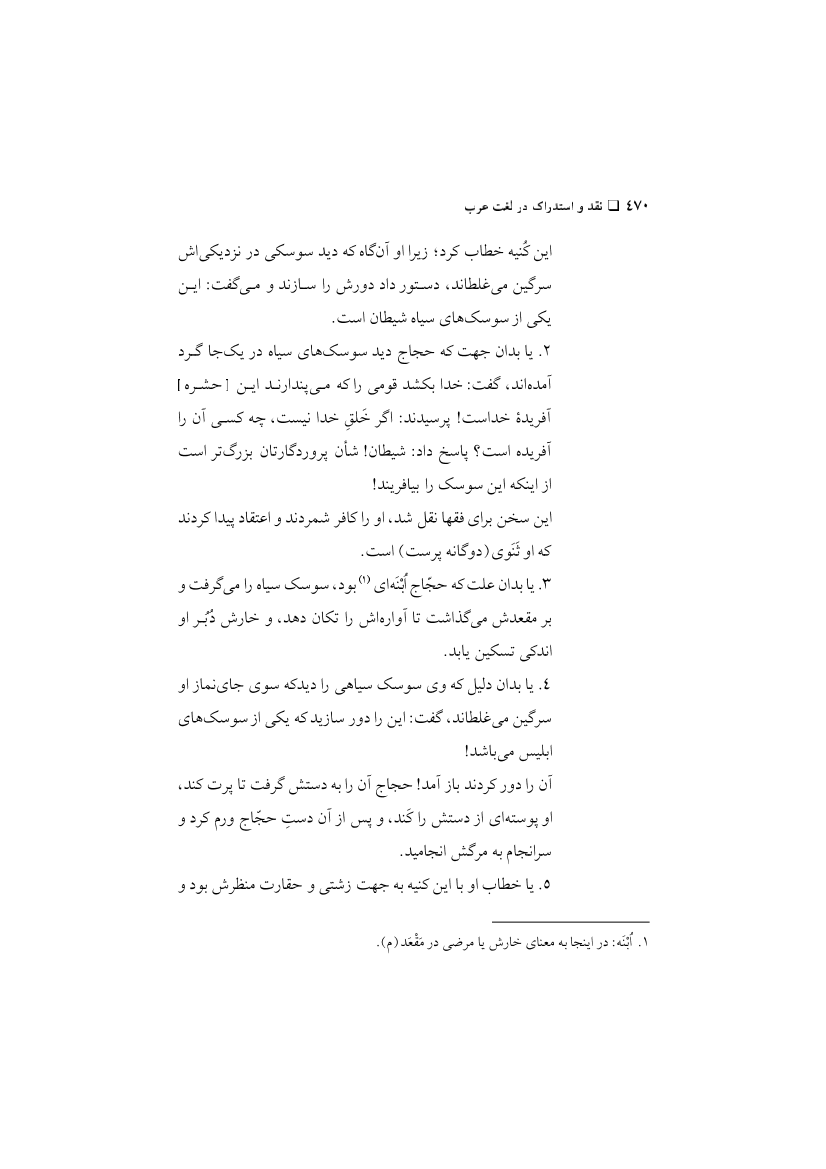 ٤٧٠ ❑ نقد و استدراک در لغت عرب
این کُنیه خطاب کرد؛ زیرا او آن‌گاه که دید سوسکی در نزدیکی‌اش
سرگین می‌غلطاند، دستور داد دورش را سازند و می‌گفت: این
یکی از سوسک‌های سیاه شیطان است.
٢. یا بدان جهت که حجاج دید سوسک‌های سیاه در یک‌جا گرد
آمده‌اند، گفت: خدا بکشد قومی را که می‌پندارند این [حشره]
آفریدهٔ خداست! پرسیدند: اگر خَلقِ خدا نیست، چه کسی آن را
آفریده است؟ پاسخ داد: شیطان! شأن پروردگارتان بزرگ‌تر است
از اینکه این سوسک را بیافریند!
این سخن برای فقها نقل شد، او را کافر شمردند و اعتقاد پیدا کردند
که او ثَنَوی (دوگانه پرست) است.
٣. یا بدان علت که حجّاج اُبْنَه‌ای (١) بود، سوسک سیاه را می‌گرفت و
بر مقعدش می‌گذاشت تا آواره‌اش را تکان دهد، و خارش دُبُر او
اندکی تسکین یابد.
٤. یا بدان دلیل که وی سوسک سیاهی را دیدکه سوی جای‌نماز او
سرگین می‌غلطاند، گفت: این را دور سازید که یکی از سوسک‌های
ابلیس می‌باشد!
آن را دور کردند باز آمد! حجاج آن را به دستش گرفت تا پرت کند،
او پوسته‌ای از دستش را کَند، و پس از آن دستِ حجّاج ورم کرد و
سرانجام به مرگش انجامید.
٥. یا خطاب او با این کنیه به جهت زشتی و حقارت منظرش بود و
١. اُبْنَه: در اینجا به معنای خارش یا مرضی در مَقْعَد (م).